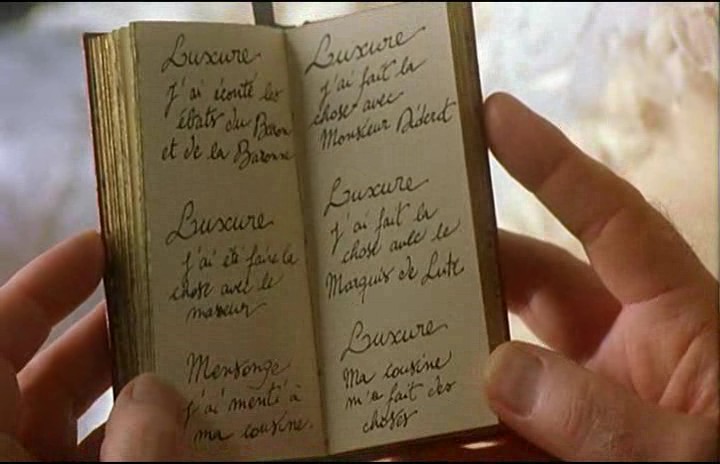 Luxure
j'ai écouté les
ébats du Baron
et de la Baronne
Luxure
j'ai été faire la
chose avec le
masseur
Mensonge
j'ai menti à
ma cousine.
Luxure
j'ai fait la
chose avec
Monsieur Diderot
Luxure
j'ai fait la
chose avec le
Marquis de Lutz
Luxure
Ma cousine
m'a fait des
choses